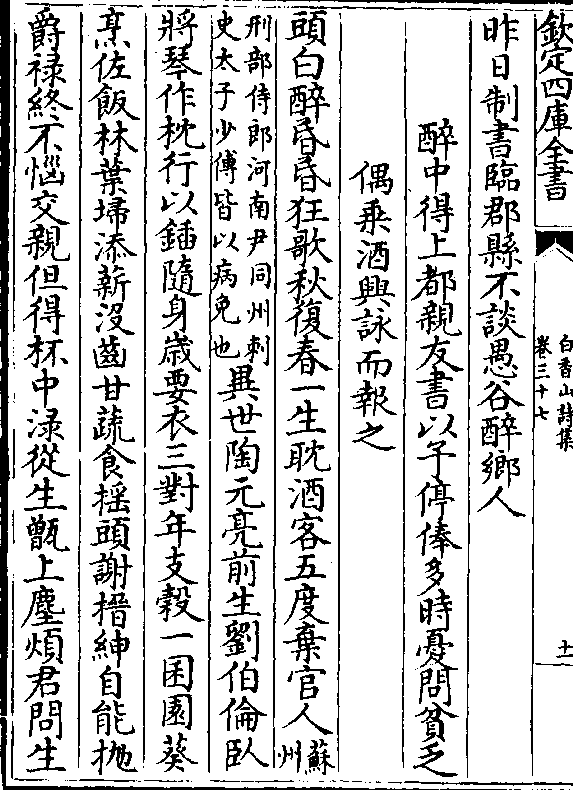 欽定四庫全書
白香山詩集
卷三十七
十一
昨日制書臨郡縣不談愚谷醉鄉人
醉中得上都親友書以予停俸多時憂問貧乏
偶乘酒興詠而報之
頭白醉昏昏狂歌秋復春一生耽酒客五度棄官人蘇州
刑部侍郎河南尹同州刺
史太子少傅皆以病免也異世陶元亮前生劉伯倫臥
將琴作枕行以鍤隨身歲要衣三對年支穀一囷園葵
烹佐飯林葉埽添薪没齒甘蔬食揺頭謝搢紳自能抛
爵禄終不惱交親但得杯中渌從生甑上塵煩君問生